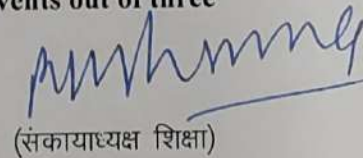 vents out of three
(संकायाध्यक्ष शिक्षा)